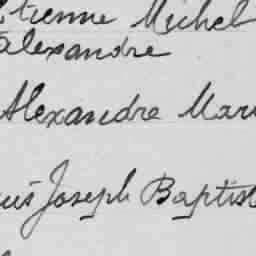 Etienne Michel
alexandre
Alexandre Mari
Joseph Baptis